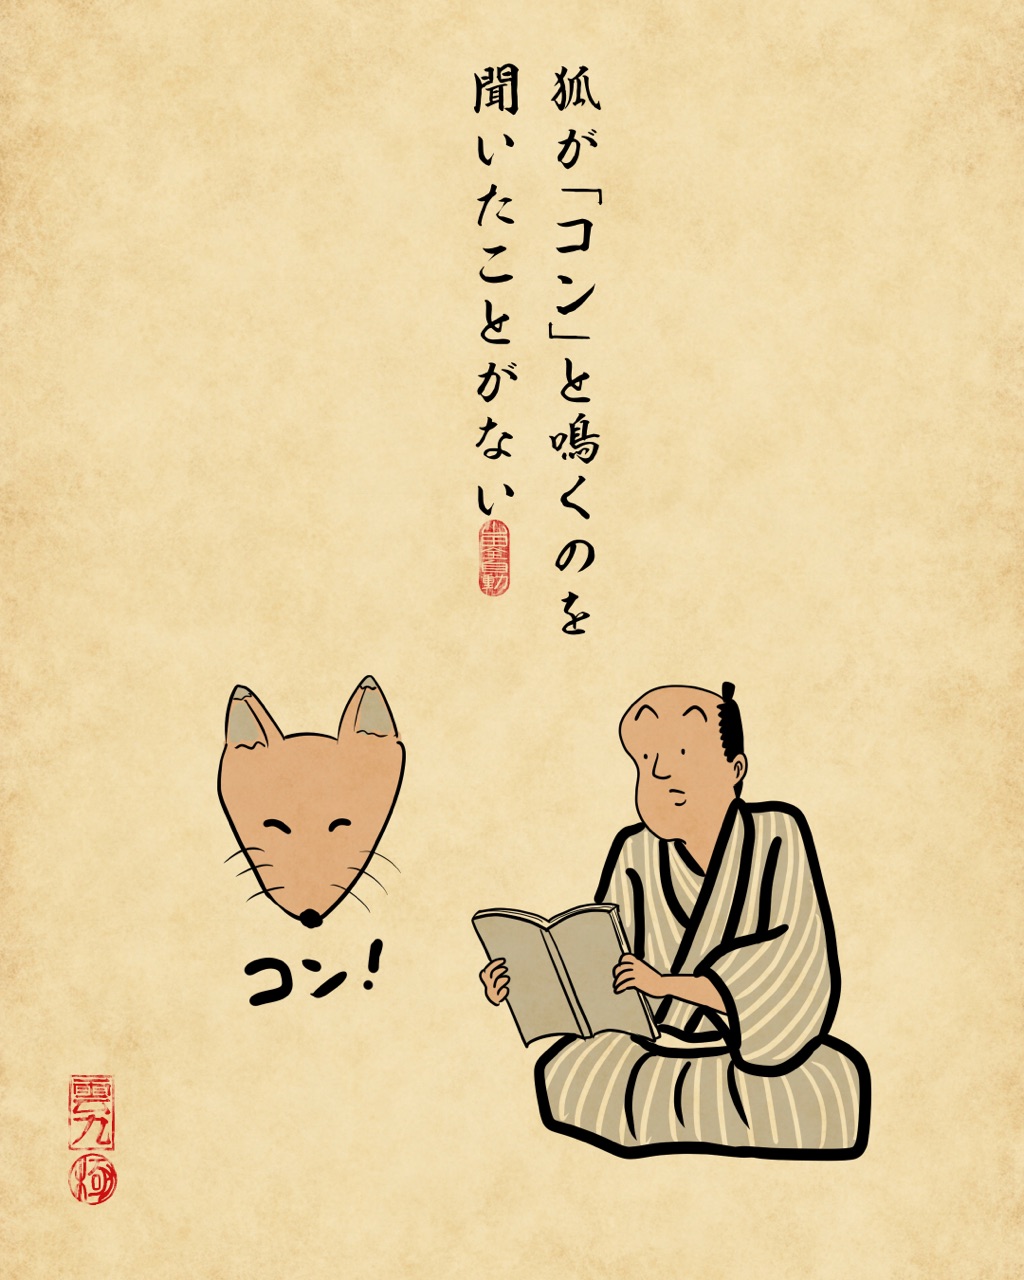 狐が「コン」と鳴くのを
聞いたことがない
コン!